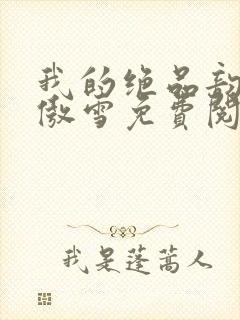 我的绝品
傲雪免费阅
我是蓬蒿人